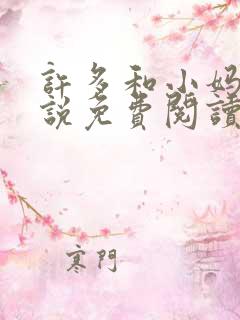 許多和小妈
説免費閱讀
寒門